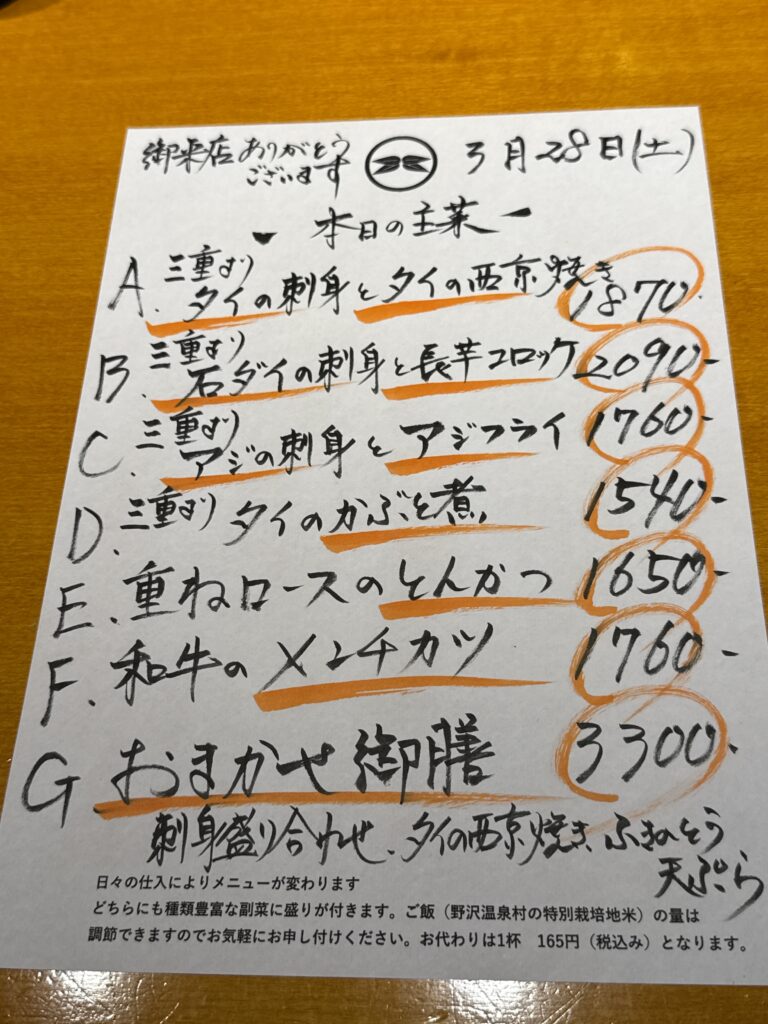 御来店ありがとうございます 3月28日(土)
本日の主菜
A. 三重より
タイの刺身とタイの西京焼き 1870-
B. 三重より
石ダイの刺身と長芋コロッケ 2090-
C. 三重より
アジの刺身とアジフライ 1760-
D. 三重より タイのかぶと煮 1540-
E. 重ねロースのとんかつ 1650-
F. 和牛のメンチカツ 1760-
G おまかせ御膳 3300-
刺身盛り合わせ、タイの西京焼き ふきのとう
天ぷら
日々の仕入によりメニューが変わります
どちらにも種類豊富な副菜に盛りが付きます。ご飯（野沢温泉村の特別栽培地米）の量は
調節できますのでお気軽にお申し付けください。お代わりは1杯 165円（税込み）となります。